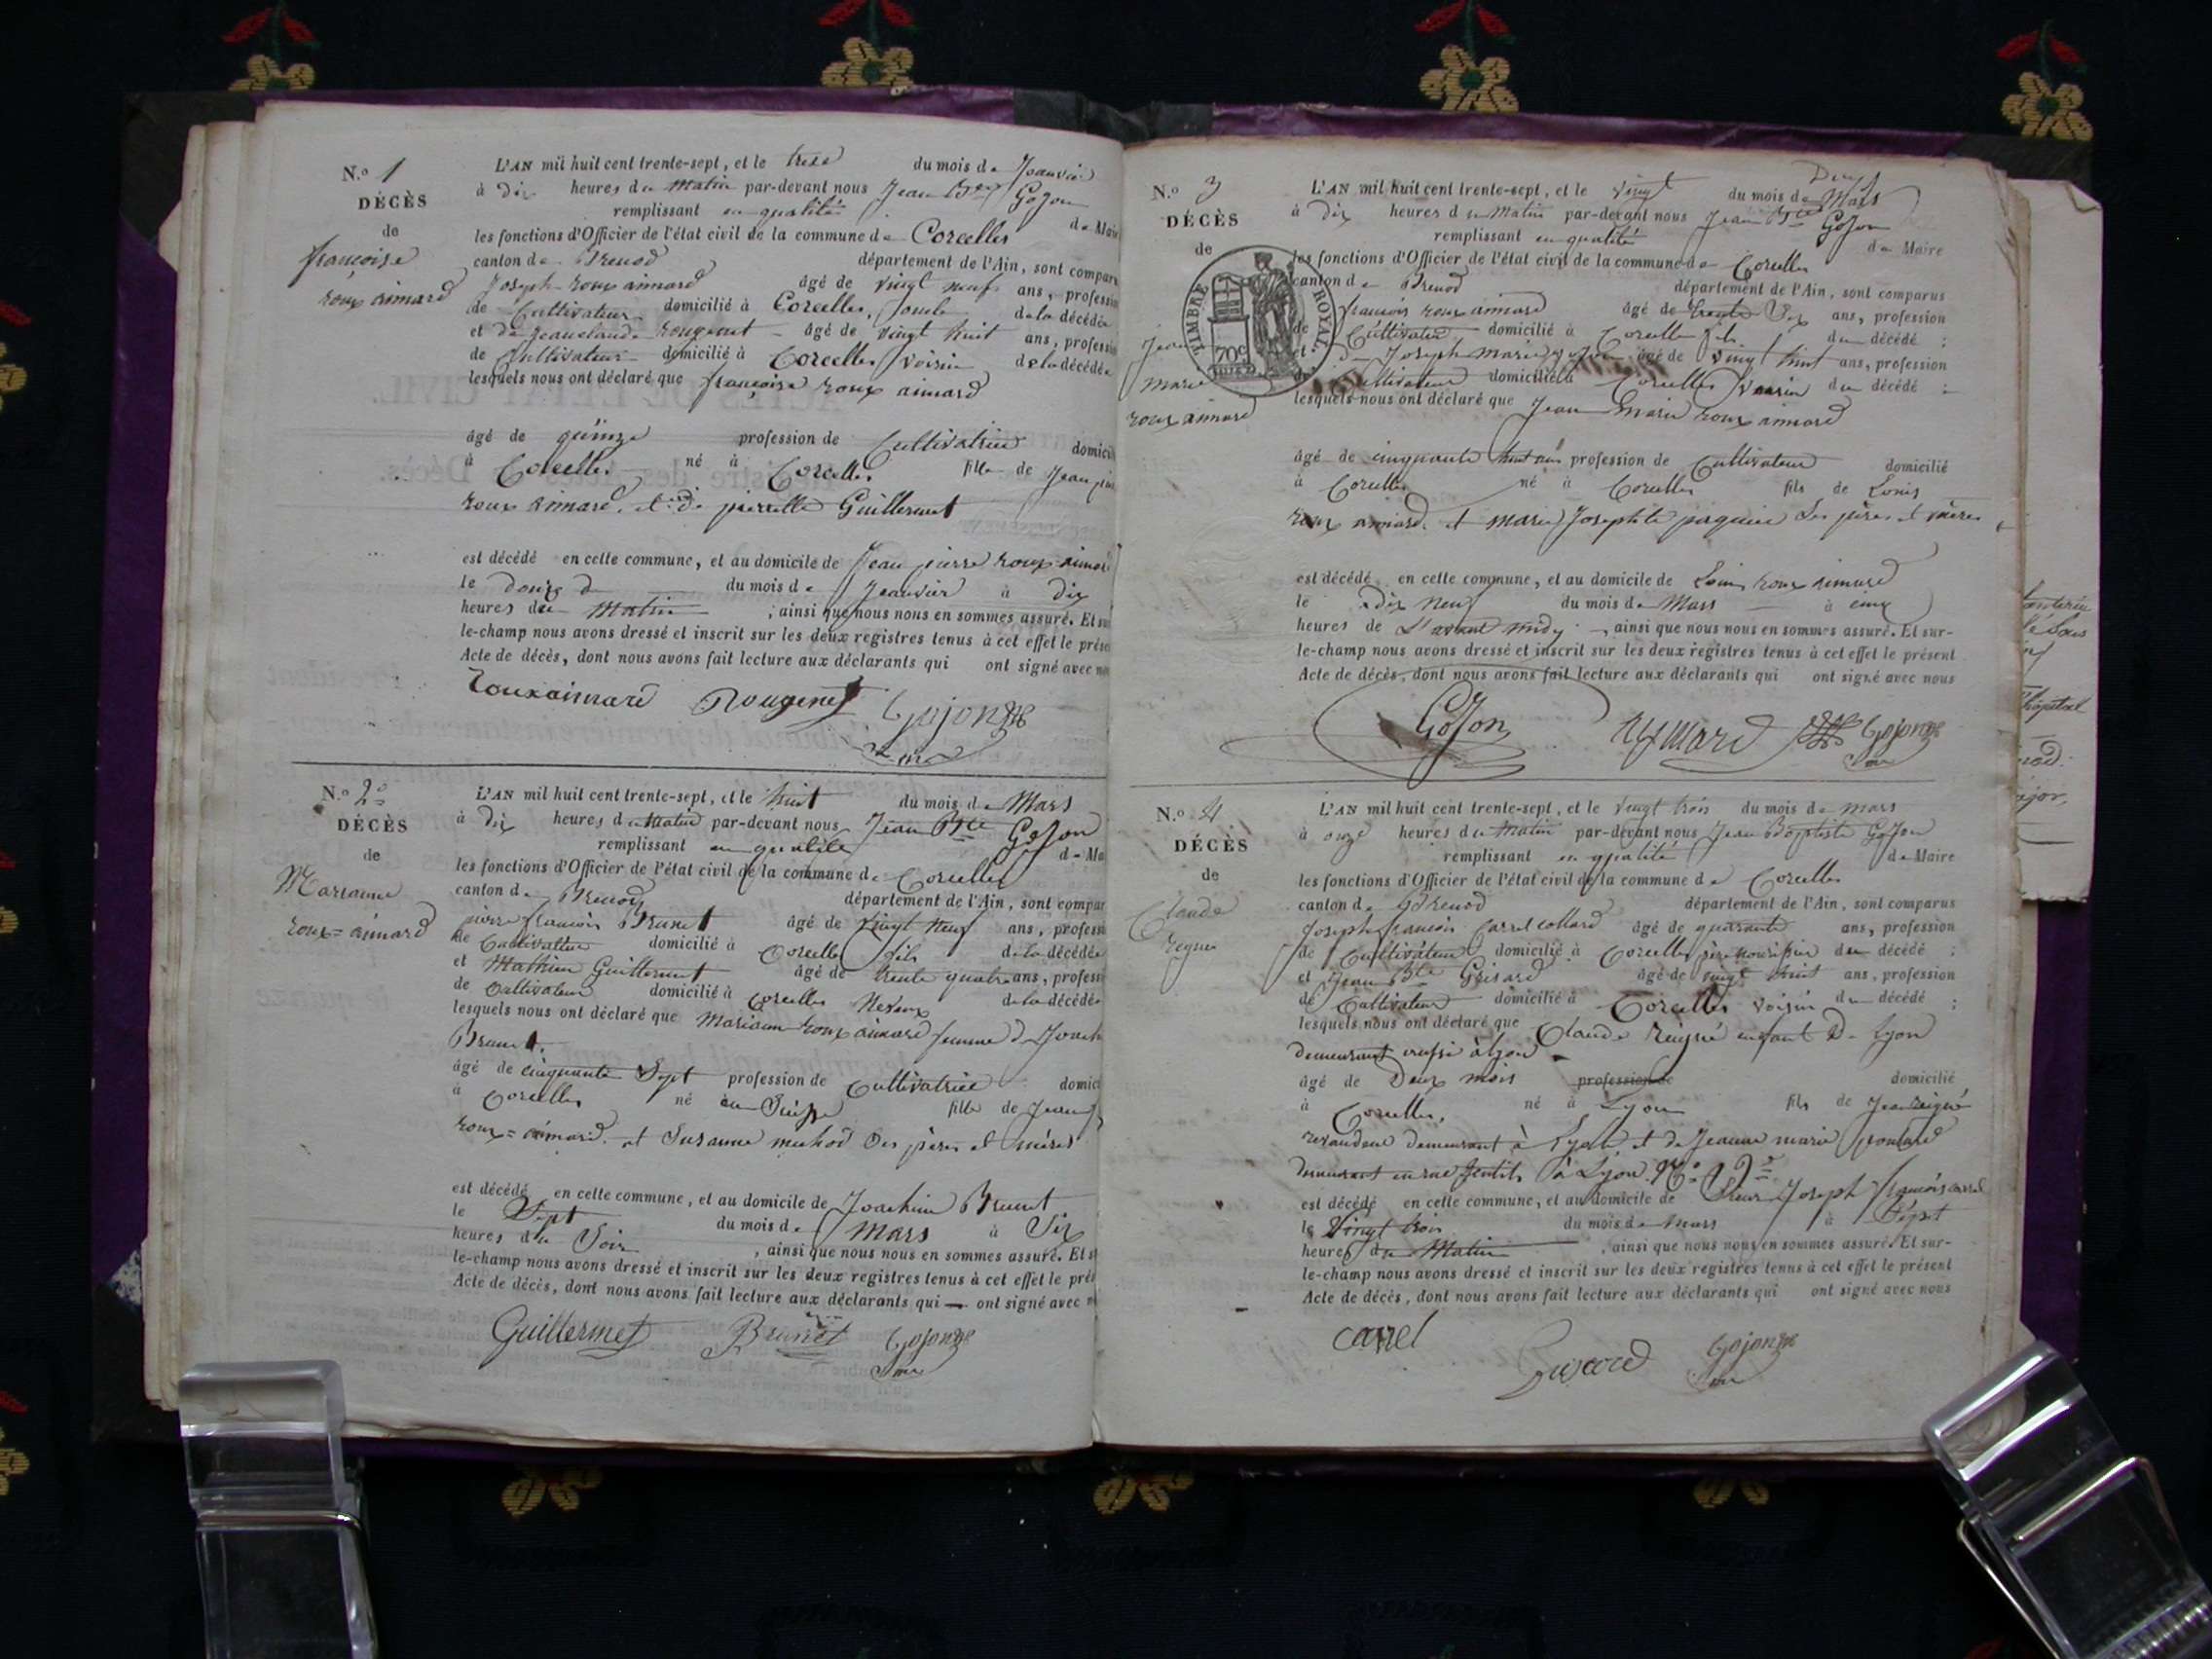 N.o 1
DÉCÈS
de
françoise
roux aimard
L'AN mil huit cent trente-sept, et le treze du mois de Jeanvier
à Dix heures du Matin par-devant nous Jean Bte Gojon
remplissant en qualité de Maire
les fonctions d'Officier de l'état civil de la commune de Corcelles
canton de Brenod département de l'Ain, sont comparus
Joseph roux aimard âgé de vingt neuf ans, profession
de Cultivateur domicilié à Corcelles, de la décédée
et de Jeanclaude rougemet âgé de vingt huit ans, profession
de Cultivateur domicilié à Corcelles voisin de la décédée
lesquels nous ont déclaré que françoise roux aimard
âgé de quinze profession de Cultivatrice domicilié
à Corcelles né à Corcelles fille de Jean pierre
roux aimard, et de pierrette Guillermet
est décédé en cette commune, et au domicile de Jean pierre roux aimard
le douze du mois de Jeanvier à dix
heures du Matin ; ainsi que nous nous en sommes assuré. Et sur
le-champ nous avons dressé et inscrit sur les deux registres tenus à cet effet le présent
Acte de décès, dont nous avons fait lecture aux déclarants qui ont signé avec nous
Rouxaimard Rougemet Gojon
N.o 2
DÉCÈS
de
Marianne
roux=aimard
L'AN mil huit cent trente-sept, et le huit du mois de Mars
à dix heures du Matin par-devant nous Jean Bte Gojon
remplissant en qualité de Ma
les fonctions d'Officier de l'état civil de la commune de Corcelles
canton de Brenod département de l'Ain, sont compar
pierre françois Brunet âgé de vingt neuf ans, professi
de Cultivatteur domicilié à Corcelles fils de la décédée
et Mathieu Guillermet âgé de trente quatre ans, professi
de Cultivateur domicilié à Corcelles Neveux de la décédée
lesquels nous ont déclaré que Mariann roux aimard femme d Joach
Brunet.
âgé de cinquante Sept profession de Cultivatrice domici
à Corcelles né en Suisse fille de Jean
roux=aimard. et Susanne muhod Des pères et mères
est décédé en cette commune, et au domicile de Joachim Brunet
le Sept du mois de Mars à Six
heures du Soir , ainsi que nous nous en sommes assuré. Et s
le-champ nous avons dressé et inscrit sur les deux registres tenus à cet effet le prés
Acte de décès, dont nous avons fait lecture aux déclarants qui — ont signé avec n
Guillermet Brunet Gojon
N.o 3
DÉCÈS
de
Jean
marie
roux aimard
TIMBRE ROYAL
70c
L'AN mil huit cent trente-sept, et le vingt du mois de Mars
à Dix heures du Matin par-devant nous Jean Bte Gojon
remplissant en qualité de Maire
les fonctions d'Officier de l'état civil de la commune de Corcelles
canton de Brenod département de l'Ain, sont comparus
françois roux aimard âgé de trente Six ans, profession
de Cultivateur domicilié à Corcelles fils du décédé ;
et de Joseph marie Gojon âgé de vingt huit ans, profession
de Cultivateur domicilié à Corcelles Voisin du décédé ;
lesquels nous ont déclaré que Jean Marie roux aimard
âgé de cinquante huit ans profession de Cultivateur domicilié
à Corcelles né à Corcelles fils de Louis
roux aimard. et marie Josephte Ses pères et mères
est décédé en cette commune, et au domicile de Louis roux aimard
le dix Neuf du mois de Mars à cinq
heures de L'avant midy , ainsi que nous nous en sommes assuré. Et sur-
le-champ nous avons dressé et inscrit sur les deux registres tenus à cet effet le présent
Acte de décès, dont nous avons fait lecture aux déclarants qui ont signé avec nous
GoJon Gojon
N.o 4
DÉCÈS
de
Claude
L'AN mil huit cent trente-sept, et le Vingt trois du mois de mars
à onze heures du Matin par-devant nous Jean Baptiste GoJon
remplissant en qualité de Maire
les fonctions d'Officier de l'état civil de la commune de Corcelles
canton de Brenod département de l'Ain, sont comparus
Joseph francois Carrel collard âgé de quarante ans, profession
de Cultivateur domicilié à Corcelles père nourissier du décédé ;
et Jean Bte Grisard âgé de vingt huit ans, profession
de Cultivateur domicilié à Corcelles voisin du décédé ;
lesquels nous ont déclaré que Claude enfant De Lyon
demeurant à Lyon
âgé de Deux mois profession de domicilié
à Corcelles, né à Lyon fils de Jean
demeurant à Lyon et de Jeanne marie
demeurant en rue à Lyon.
est décédé en cette commune, et au domicile de Sieur Joseph françois carrel
le Vingt trois du mois de mars à Sept
heures du Matin , ainsi que nous nous en sommes assuré. Et sur-
le-champ nous avons dressé et inscrit sur les deux registres tenus à cet effet le présent
Acte de décès, dont nous avons fait lecture aux déclarants qui ont signé avec nous
Carrel
Grisard Gojon